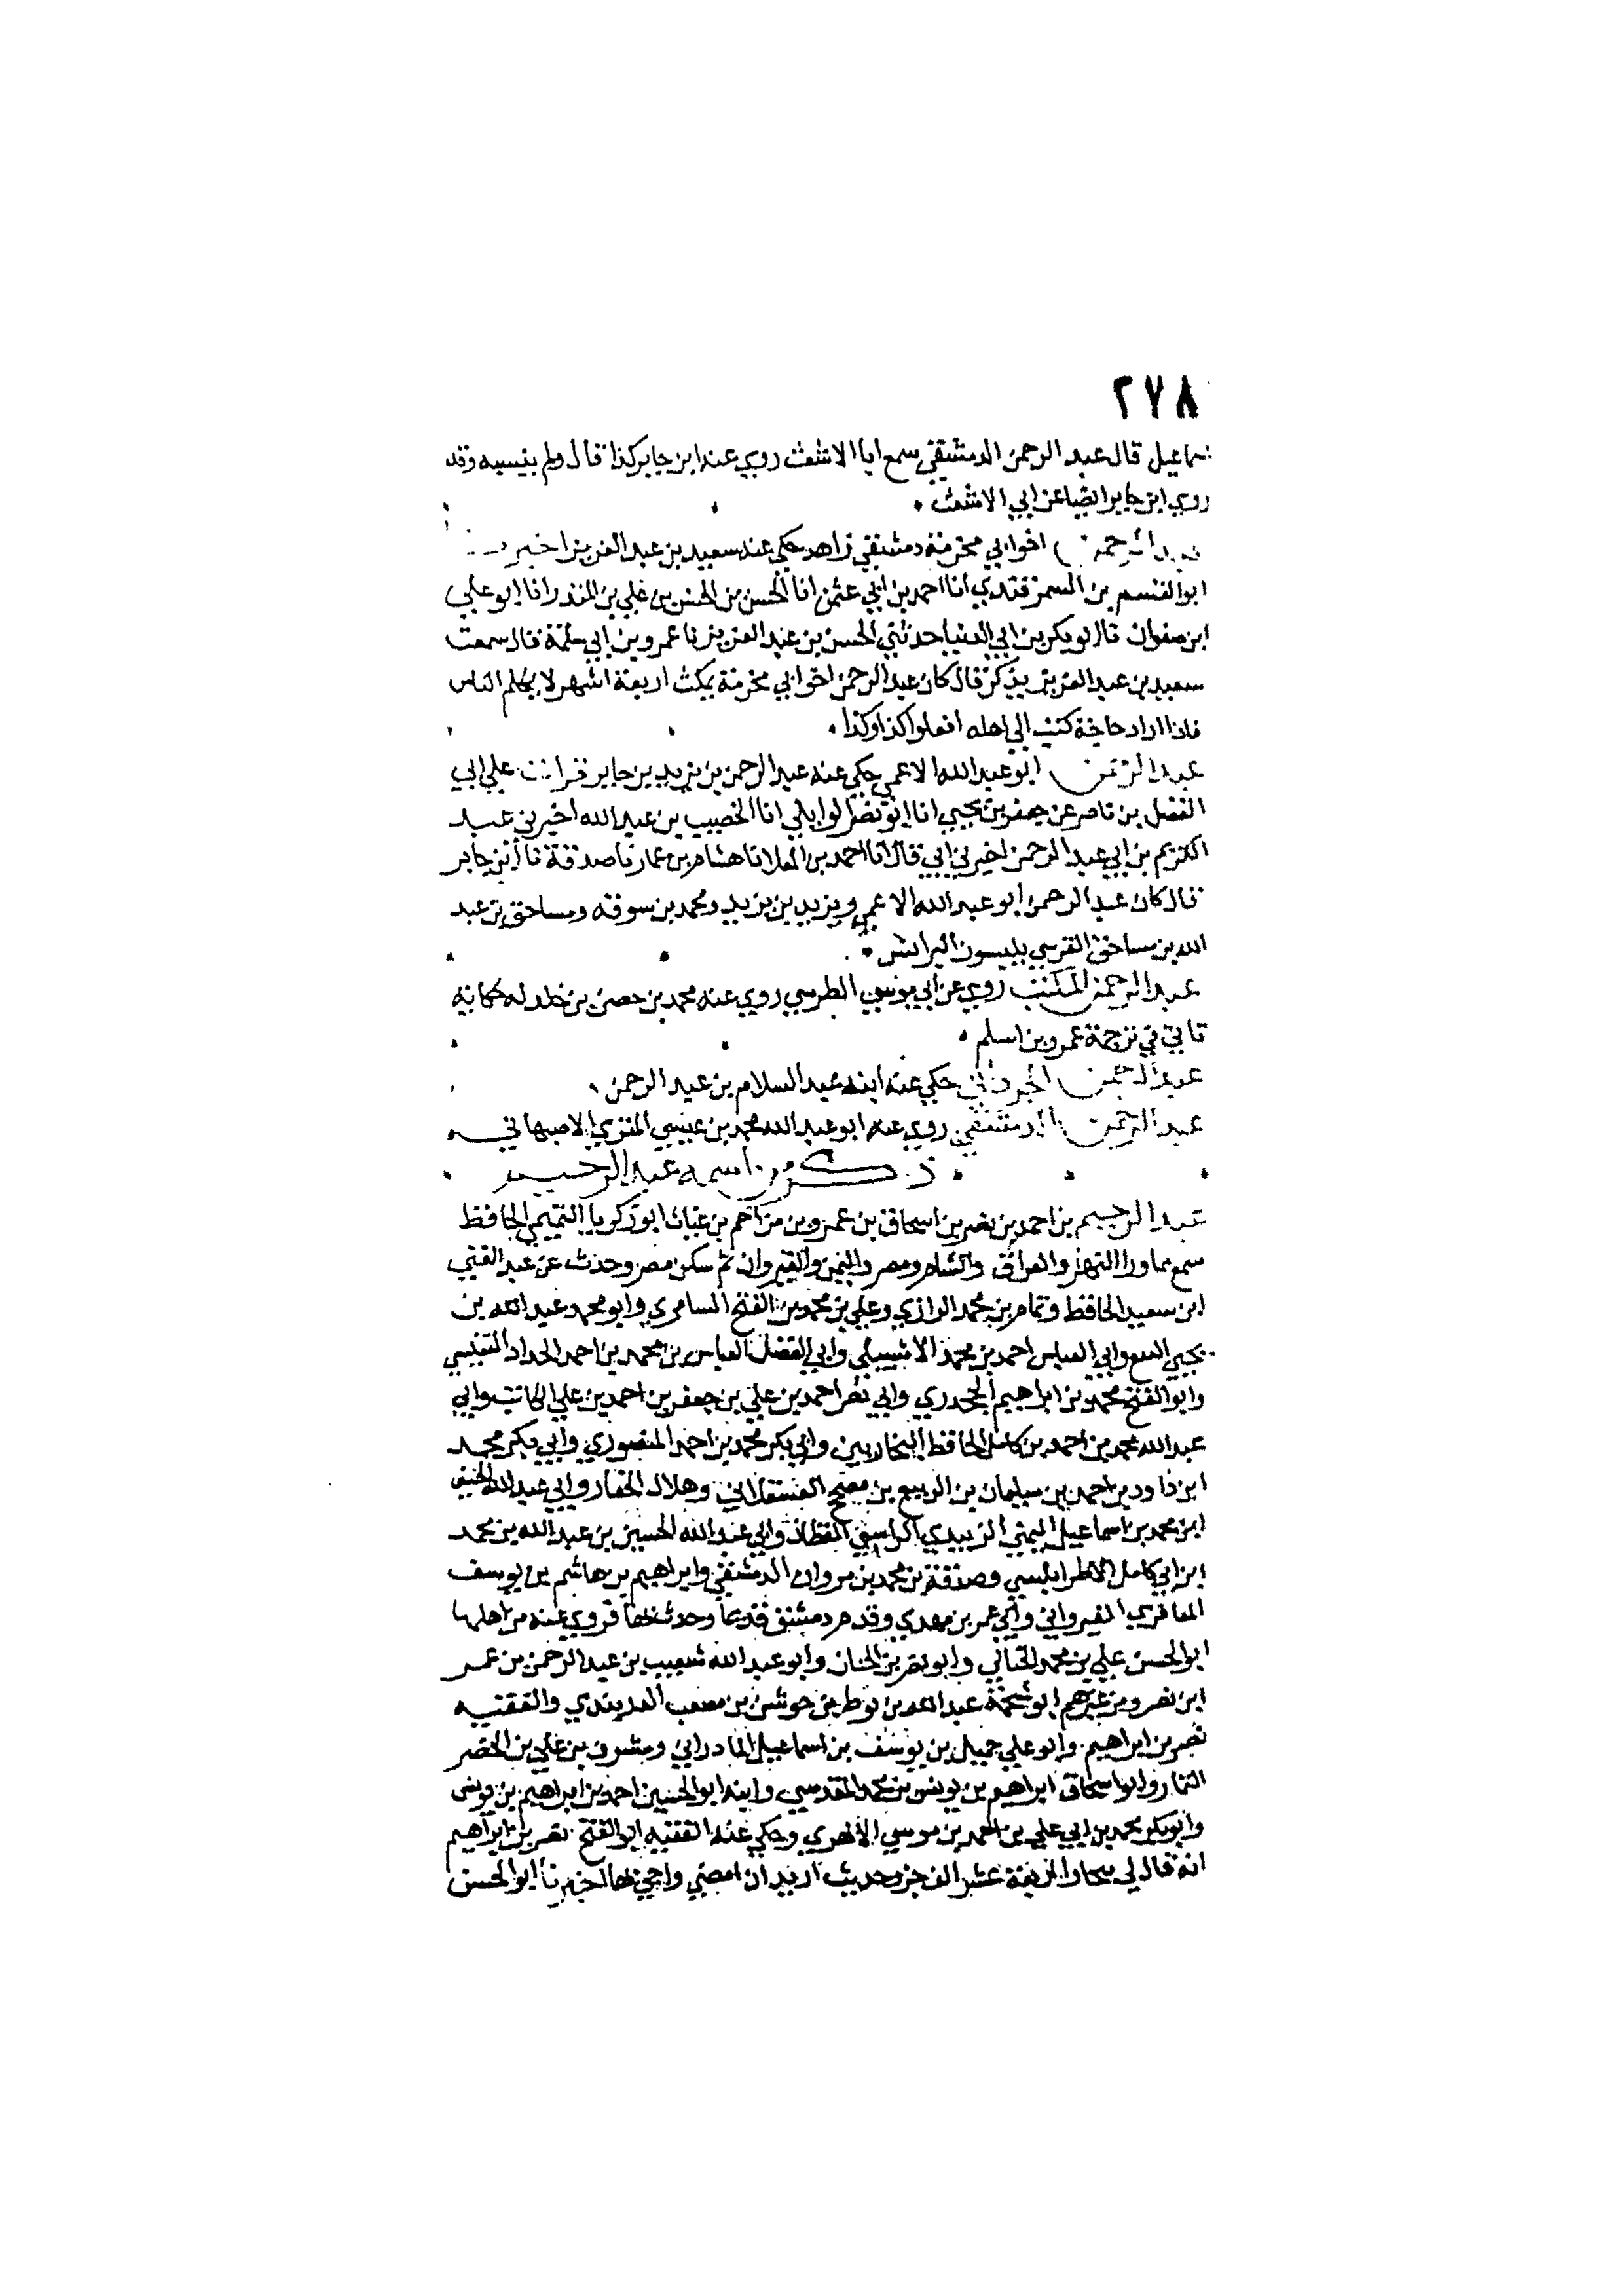 ٢٧٨
سماعيل قال عبد الرحمن الدمشقي سمع ابا الاشعث روي عنه ابن جابر كذا قال ولم ينسبه وقد
روي ابن جابر ايضا عن ابي الاشعث
عبد الرحمن اخو ابي مخرمة دمشقي زاهد حكي عنه سعيد بن عبد العزيز اخبرنا
ابو القسم بن السمرقندي انا احمد بن ابي عثمن انا الحسن بن الحسن بن علي بن المنذر انا ابو علي
ابن صفوان قال ابو بكر بن ابي الدنيا حدثني الحسن بن عبد العزيز نا عمرو بن ابي سلمة قال سمعت
سعيد بن عبد العزيز يذكر قال كان عبد الرحمن اخو ابي مخرمة يمكث اربعة اشهر لا يكلم الناس
فاذا اراد حاجة كتب الي اهله افعلوا كذا وكذا
عبد الرحمن ابو عبد الله الاعمي حكي عنه عبد الرحمن بن يزيد بن جابر قرات علي ابي
الفضل بن ناصر عن جعفر بن يحيي انا ابو نصر الوايلي انا الخصيب بن عبد الله اخبرني عبد
الكريم بن ابي عبد الرحمن اخبرني ابي قال انا احمد بن المعلا نا هشام بن عمار نا صدقة نا ابن جابر
قال كان عبد الرحمن ابو عبد الله الاعمي ويزيد بن يزيد ومحمد بن سوقه ومساحق بن عبد
الله بن مساحق القرسي يلبسون البرانس
عبد الرحمن المكتب روي عن ابي موسي الطرسي روي عنه محمد بن حصن بن خلد له حكاية
تاتي في ترجمة عمرو بن اسلم
عبد الرحمن حكي عنه ابنه عبد السلام بن عبد الرحمن
عبد الرحمن الدمشقي روي عنه ابو عبد الله محمد بن عيسي المقري الاصبهاني
ذكر من اسمه عبد الرحيم
عبد الرحيم بن احمد بن نصر بن اسحاق بن عمرو بن مزاحم بن غياث ابو زكريا التميمي الحافظ
سمع بماورا النهر والعراق والشام ومصر واليمن والقيروان ثم سكن مصر وحدث عن عبد الغني
ابن سعيد الحافظ وتمام بن محمد الرازي وعلي بن محمد بن الفتح السامري وابو محمد عبد الله بن
يحيي وابي العباس احمد بن محمد الاشبيلي وابي الفضل العباس بن محمد بن احمد الحداد التنيسي
وابو الفتح محمد بن ابراهيم الجحدري وابي نصر احمد بن علي بن جعفر بن احمد بن علي الكاتب وابي
عبد الله محمد بن احمد بن كامل الحافظ البخاريين وابي بكر محمد بن احمد المنصوري وابي بكر محمد
ابن داود بن احمد بن سليمان بن الربيع بن مصحح العسقلاني وهلال الحفار وابي عبد الله
ابن محمد بن اسماعيل اليمني الزبيدي القطان وابي عبد الله الحسين بن عبد الله بن محمد
ابن ابي كامل الاطرابلسي وصدقة بن محمد بن مروان الدمشقي وابراهيم بن هاشم بن يوسف
المعافري القيرواني وابي عمر بن مهدي وقدم دمشق قديما وحدث بها فروي عنه من اهلها
ابو الحسن علي بن محمد الحنائي وابو نصر بن الجبان وابو عبد الله شعيب بن عبد الرحمن بن عمر
ابن نصر ومن غيرهم عبد الله بن لوط بن حوشن بن مصعب والفقيه
نصر بن ابراهيم وابو علي جميل بن يوسف بن اسماعيل المادراني ومشرف بن علي بن الخضر
التمار وابو اسحاق ابراهيم بن يونس بن محمد المقدسي وابنه ابو الحسين احمد بن ابراهيم بن يونس
وابو بكر محمد بن ابي علي بن محمد بن موسي وحكي عنه الفقيه ابو الفتح نصر بن ابراهيم
انه قال لي بخارا اربعة عشر الف جزو حديث اريد ان امضي واجي بها اخبرنا ابو الحسن